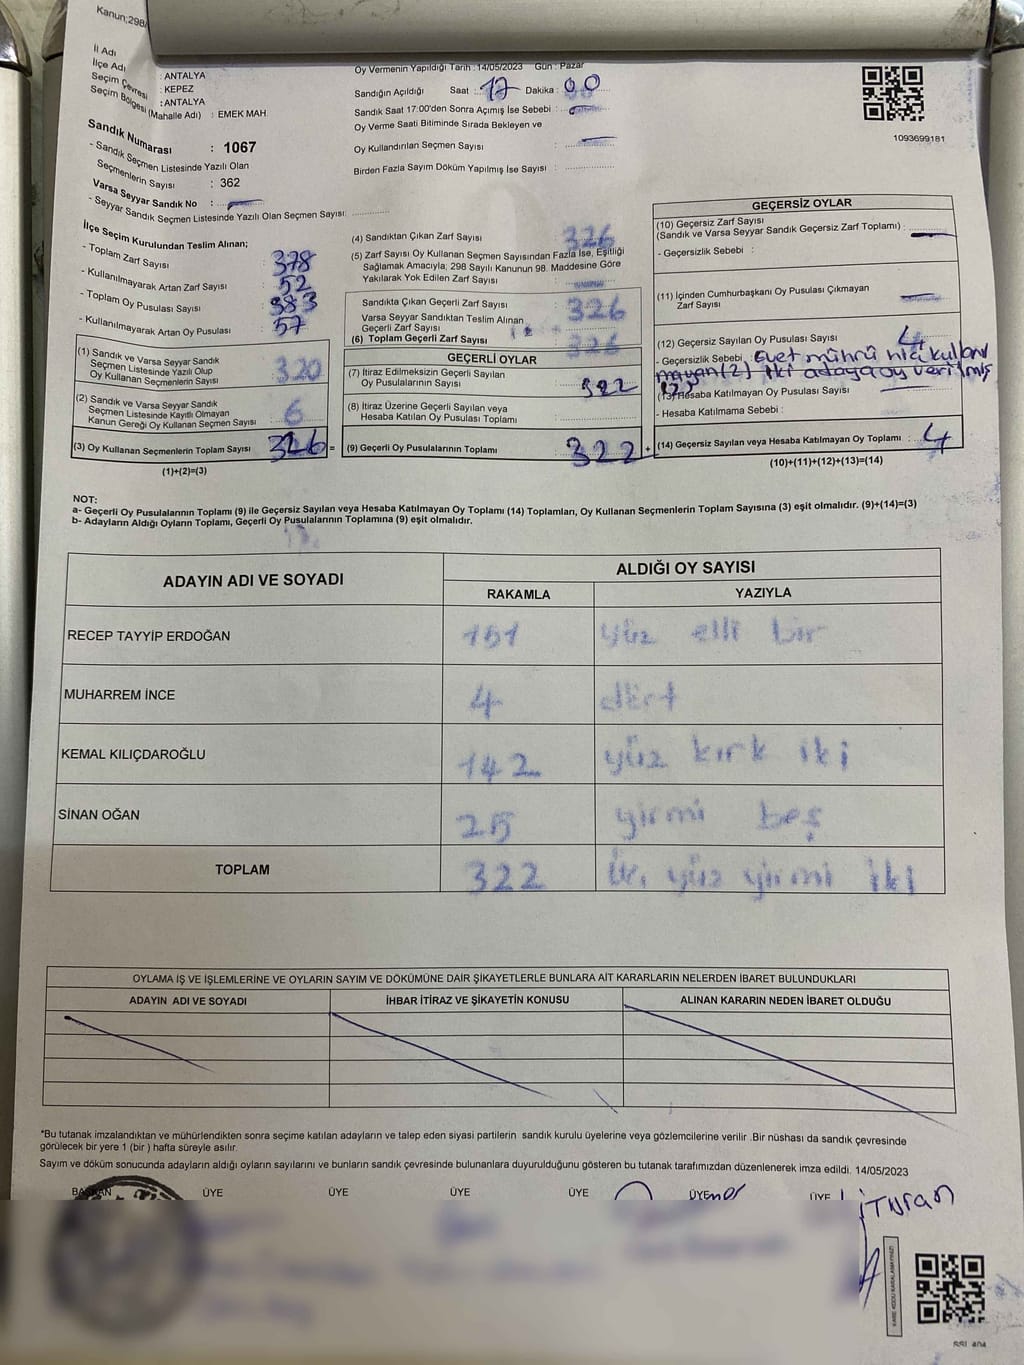 Kanun;298/
İl Adı : ANTALYA
İlçe Adı : KEPEZ
Seçim Çevresi : ANTALYA
Seçim Bölgesi (Mahalle Adı) : EMEK MAH.
Sandık Numarası : 1067
- Sandık Seçmen Listesinde Yazılı Olan
Seçmenlerin Sayısı : 362
Varsa Seyyar Sandık No :
- Seyyar Sandık Seçmen Listesinde Yazılı Olan Seçmen Sayısı:
Oy Vermenin Yapıldığı Tarih :14/05/2023 Gün : Pazar
Sandığın Açıldığı Saat : 17 Dakika : 00
Sandık Saat 17:00'den Sonra Açımış İse Sebebi :
Oy Verme Saati Bitiminde Sırada Bekleyen ve
Oy Kullandırılan Seçmen Sayısı :
Birden Fazla Sayım Döküm Yapılmış İse Sayısı :
1093699181
İlçe Seçim Kurulundan Teslim Alınan;
- Toplam Zarf Sayısı : 378
- Kullanılmayarak Artan Zarf Sayısı : 52
- Toplam Oy Pusulası Sayısı : 383
- Kullanılmayarak Artan Oy Pusulası : 57
(1) Sandık ve Varsa Seyyar Sandık
Seçmen Listesinde Yazılı Olup
Oy Kullanan Seçmenlerin Sayısı : 320
(2) Sandık ve Varsa Seyyar Sandık
Seçmen Listesinde Kayıtlı Olmayan
Kanun Gereği Oy Kullanan Seçmen Sayısı : 6
(3) Oy Kullanan Seçmenlerin Toplam Sayısı : 326 =
(1)+(2)=(3)
(4) Sandıktan Çıkan Zarf Sayısı : 326
(5) Zarf Sayısı Oy Kullanan Seçmen Sayısından Fazla İse, Eşitliği
Sağlamak Amacıyla; 298 Sayılı Kanunun 98. Maddesine Göre
Yakılarak Yok Edilen Zarf Sayısı :
Sandıkta Çıkan Geçerli Zarf Sayısı : 326
Varsa Seyyar Sandıktan Teslim Alınan
Geçerli Zarf Sayısı :
(6) Toplam Geçerli Zarf Sayısı : 326
GEÇERLİ OYLAR
(7) İtiraz Edilmeksizin Geçerli Sayılan
Oy Pusulalarının Sayısı : 322
(8) İtiraz Üzerine Geçerli Sayılan veya
Hesaba Katılan Oy Pusulası Toplamı :
(9) Geçerli Oy Pusulalarının Toplamı : 322 +
GEÇERSİZ OYLAR
(10) Geçersiz Zarf Sayısı
(Sandık ve Varsa Seyyar Sandık Geçersiz Zarf Toplamı) :
- Geçersizlik Sebebi :
(11) İçinden Cumhurbaşkanı Oy Pusulası Çıkmayan
Zarf Sayısı :
(12) Geçersiz Sayılan Oy Pusulası Sayısı : 4
- Geçersizlik Sebebi : Evet mührü hiç kullanı
mayan(2) iki adaya oy verilmiş
(13) Hesaba Katılmayan Oy Pusulası Sayısı :
- Hesaba Katılmama Sebebi :
(14) Geçersiz Sayılan veya Hesaba Katılmayan Oy Toplamı : 4
(10)+(11)+(12)+(13)=(14)
NOT:
a- Geçerli Oy Pusulalarının Toplamı (9) ile Geçersiz Sayılan veya Hesaba Katılmayan Oy Toplamı (14) Toplamları, Oy Kullanan Seçmenlerin Toplam Sayısına (3) eşit olmalıdır. (9)+(14)=(3)
b- Adayların Aldığı Oyların Toplamı, Geçerli Oy Pusulalarının Toplamına (9) eşit olmalıdır.
ADAYIN ADI VE SOYADI ALDIĞI OY SAYISI
RAKAMLA YAZIYLA
RECEP TAYYİP ERDOĞAN 151 yüz elli bir
MUHARREM İNCE 4 dört
KEMAL KILIÇDAROĞLU 142 yüz kırk iki
SİNAN OĞAN 25 yirmi beş
TOPLAM 322 üç yüz yirmi iki
OYLAMA İŞ VE İŞLEMLERİNE VE OYLARIN SAYIM VE DÖKÜMÜNE DAİR ŞİKAYETLERLE BUNLARA AİT KARARLARIN NELERDEN İBARET BULUNDUKLARI
ADAYIN ADI VE SOYADI İHBAR İTİRAZ VE ŞİKAYETİN KONUSU ALINAN KARARIN NEDEN İBARET OLDUĞU
*Bu tutanak imzalandıktan ve mühürlendikten sonra seçime katılan adayların ve talep eden siyasi partilerin sandık kurulu üyelerine veya gözlemcilerine verilir .Bir nüshası da sandık çevresinde
görülecek bir yere 1 (bir ) hafta süreyle asılır.
Sayım ve döküm sonucunda adayların aldığı oyların sayılarını ve bunların sandık çevresinde bulunanlara duyurulduğunu gösteren bu tutanak tarafımızdan düzenlenerek imza edildi. 14/05/2023
BAŞKAN ÜYE ÜYE ÜYE ÜYE ÜYE ÜYE